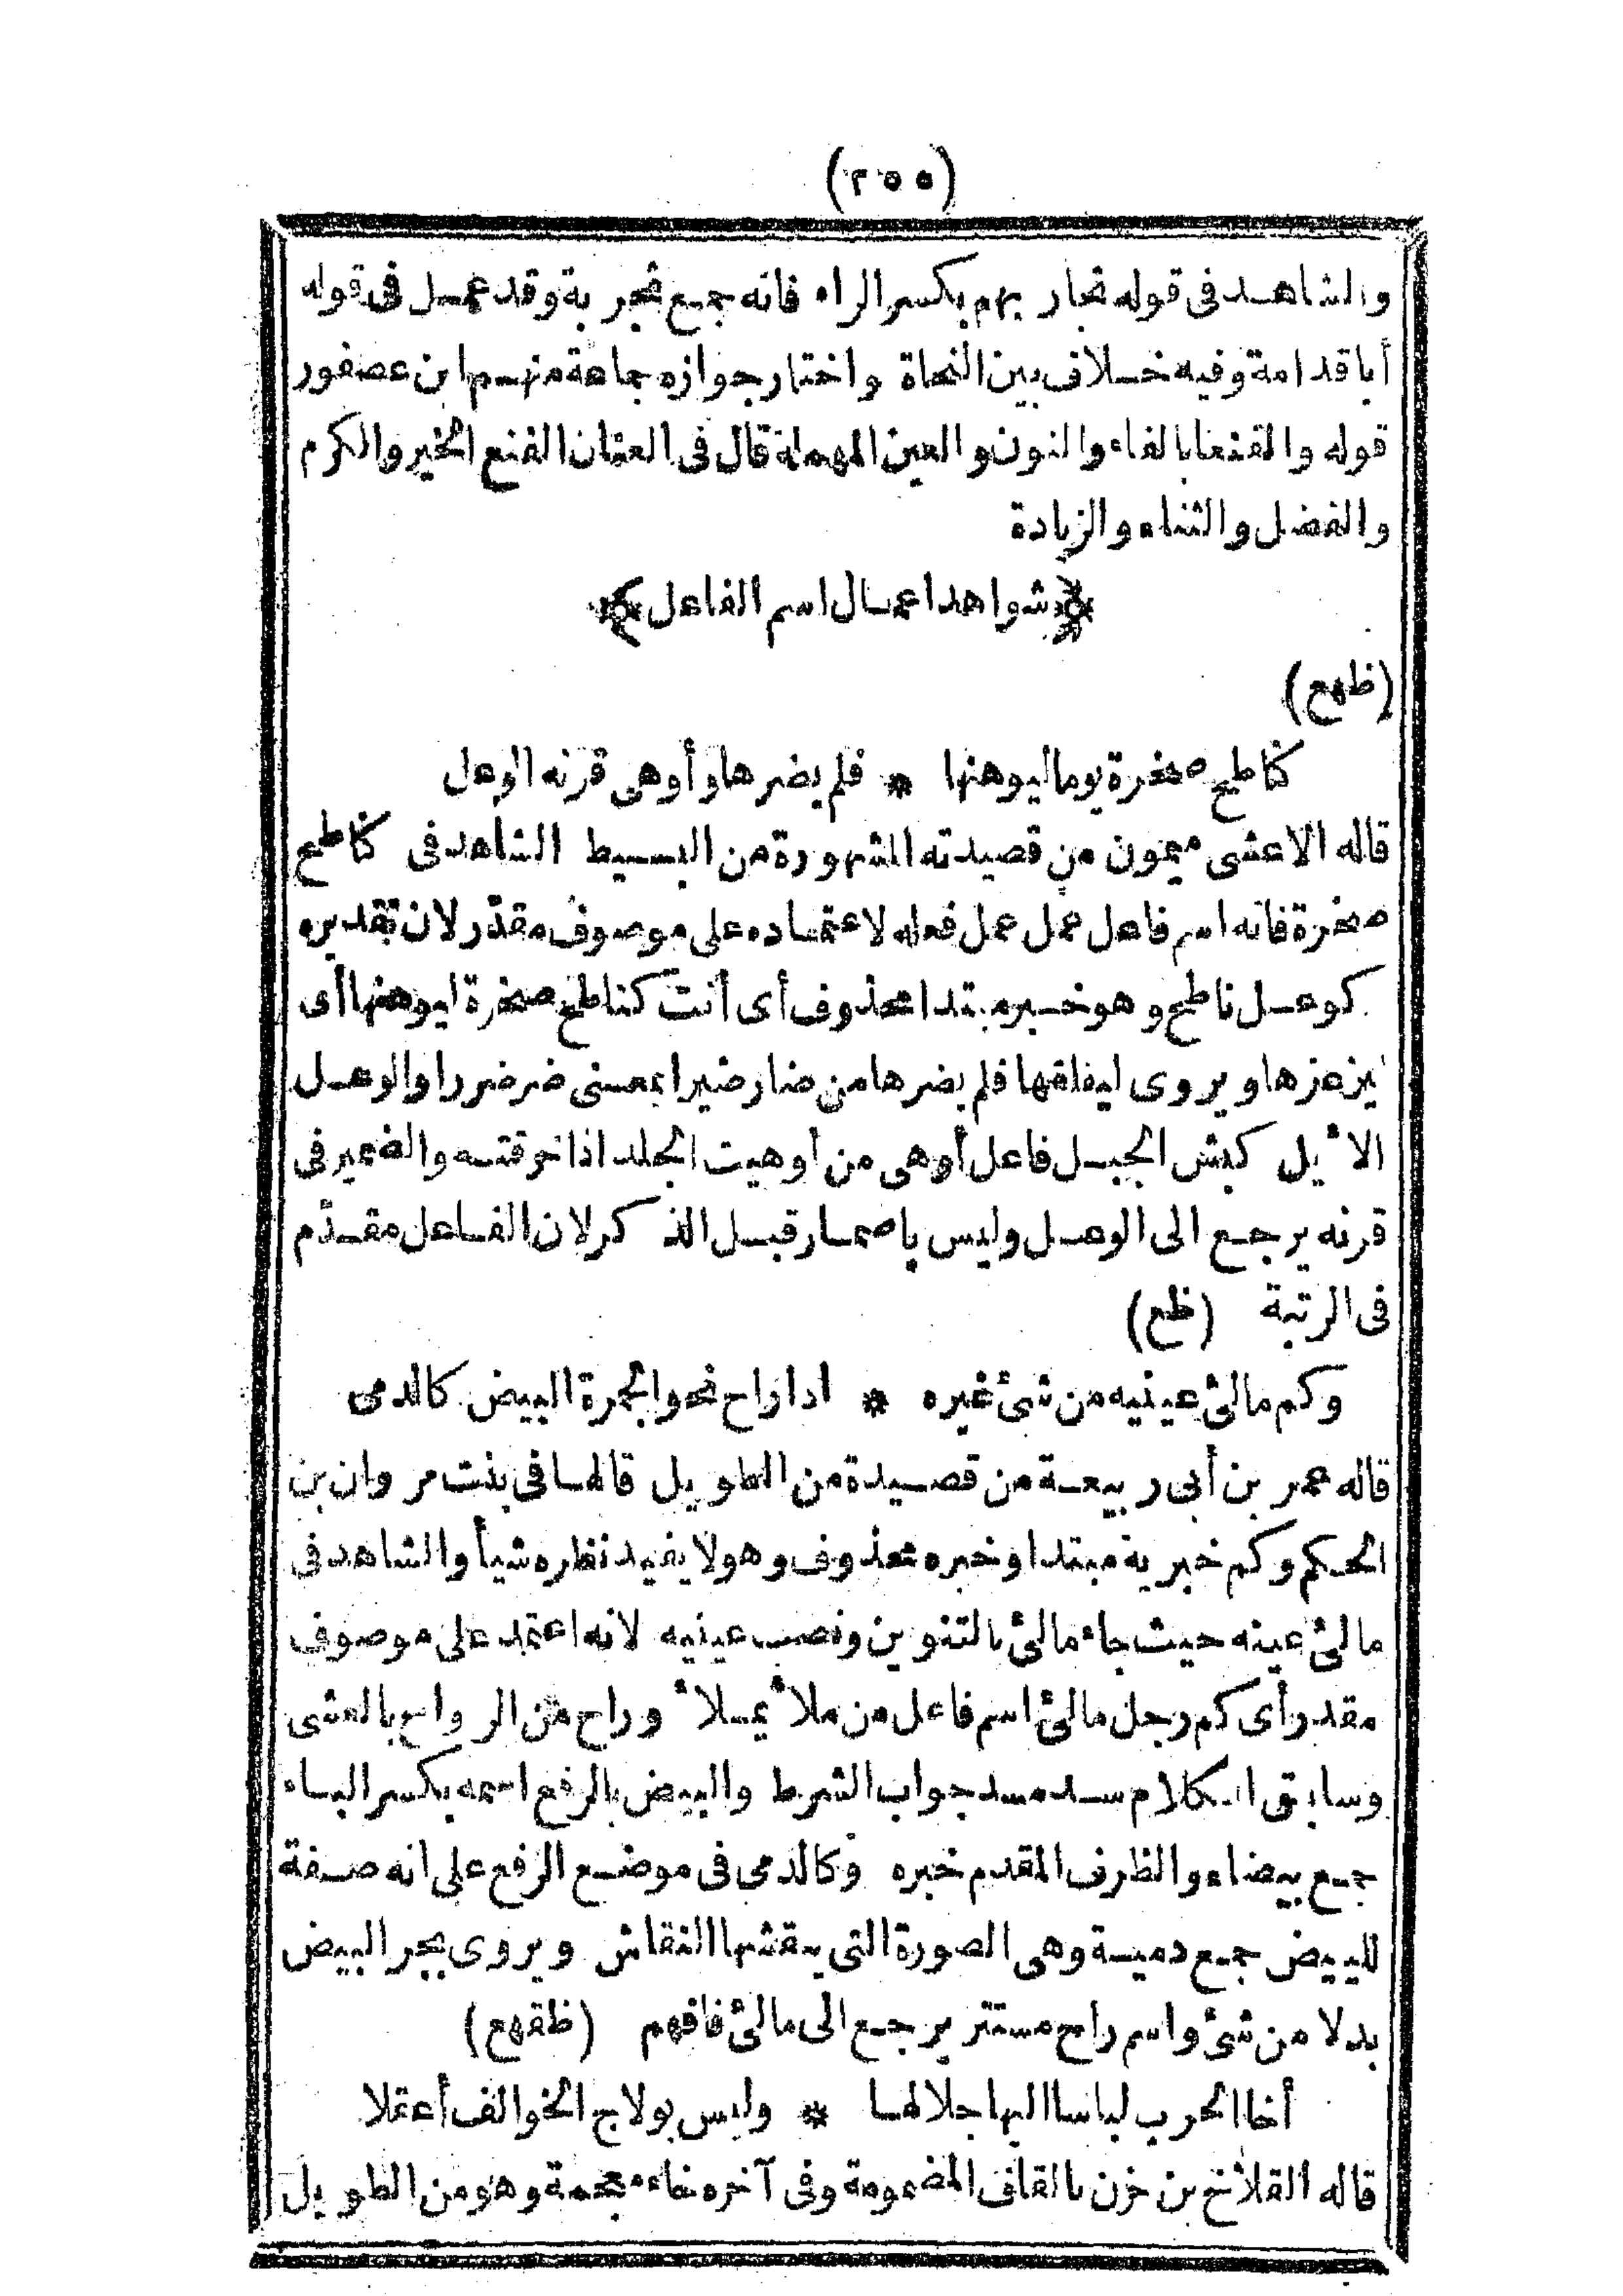 (٢٥٥)
والشاهد فى قوله تجاربهم بكسر الراء فانه جمع تجربة وقد عمل فى قوله
أبا قدامة وفيه خلاف بين النحاة واختار جوازه جماعة منهم ابن عصفور
قوله والفنعا بالفاء والنون والعين المهملة قال فى العثمان الفنع الخير والكرم
والفضل والثناء والزيادة
﴿شواهد اعمال اسم الفاعل﴾
(ظهع)
كناطح صخرة يوما ليوهنها * فلم يضرها وأوهى قرنه الوعل
قاله الاعشى ميمون من قصيدته المشهورة من البسيط الشاهد فى كناطح
صخرة فانه اسم فاعل عمل عمل فعله لاعتماده على موصوف مقدّر لان تقديره
كوعل ناطح وهو خبر مبتدا محذوف أى أنت كناطح صخرة ليوهنها أى
ليزعزها ويروى ليفلقها فلم يضرها من ضار ضيرا بمعنى ضر ضررا والوعل
الأيل كبش الجبل فاعل أوهى من أوهيت الجلد اذا خرقته والضمير فى
قرنه يرجع الى الوعل وليس باضمار قبل الذكر لان الفاعل مقدّم
فى الرتبة (ظع)
وكم مالئ عينيه من شئ غيره * اذا راح نحو الجمرة البيض كالدمى
قاله عمر بن أبى ربيعة من قصيدة من الطويل قالها فى بنت مروان بن
الحكم وكم خبرية مبتدا وخبره محذوف وهو لا يفيد نظره شيأ والشاهد فى
مالئ عينه حيث جاء مالئ بالتنوين ونصب عينيه لانه اعتمد على موصوف
مقدر أى كم رجل مالئ اسم فاعل من ملأ يملأ وراح من الرواح بالعشى
وسابق الكلام سد مسد جواب الشرط والبيض بالرفع اسمه بكسر الباء
جمع بيضاء والظرف المقدم خبره وكالدمى فى موضع الرفع على انه صفة
للبيض جمع دمية وهى الصورة التى ينقشها النقاش ويروى بجر البيض
بدلا من شئ واسم راح مستتر يرجع الى مالئ فافهم (ظقهع)
أخا الحرب لباسا اليها جلالها * وليس بولاج الخوالف أعقلا
قاله القلاخ بن حزن بالقاف المضمومة وفى آخره خاء معجمة وهو من الطويل